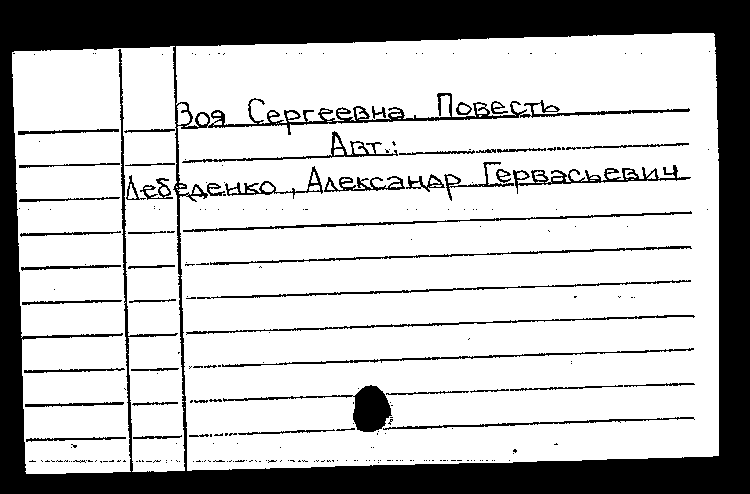 Зоя Сергеевна. Повесть
Авт.:
Лебеденко, Александр Гервасьевич